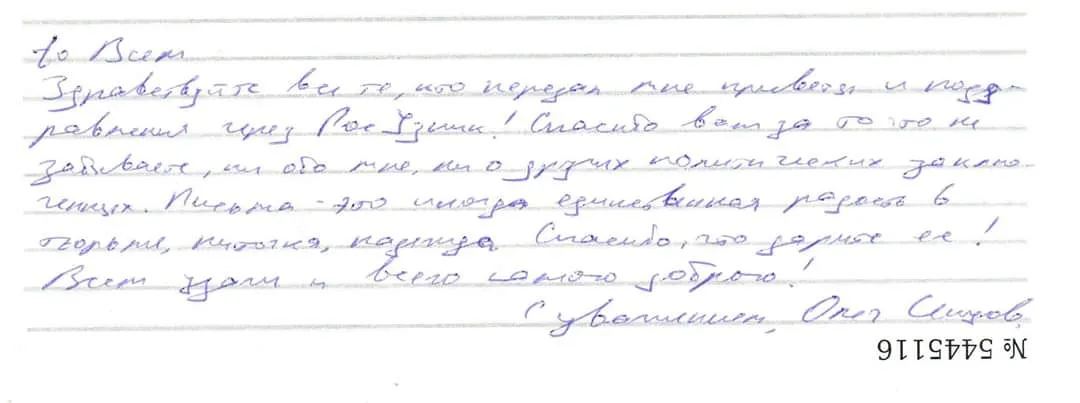 to Всем
Здравствуйте все те, кто передал мне приветы и позд-
равления через РосУзник! Спасибо вам за то что не
забываете, ни обо мне, ни о других политических заклю-
ченных. Письма - это иногда единственная радость в
тюрьме, ниточка, надежда. Спасибо, что дарите ее!
Всем удачи и всего самого доброго!
С уважением, Олег
№ 5445116